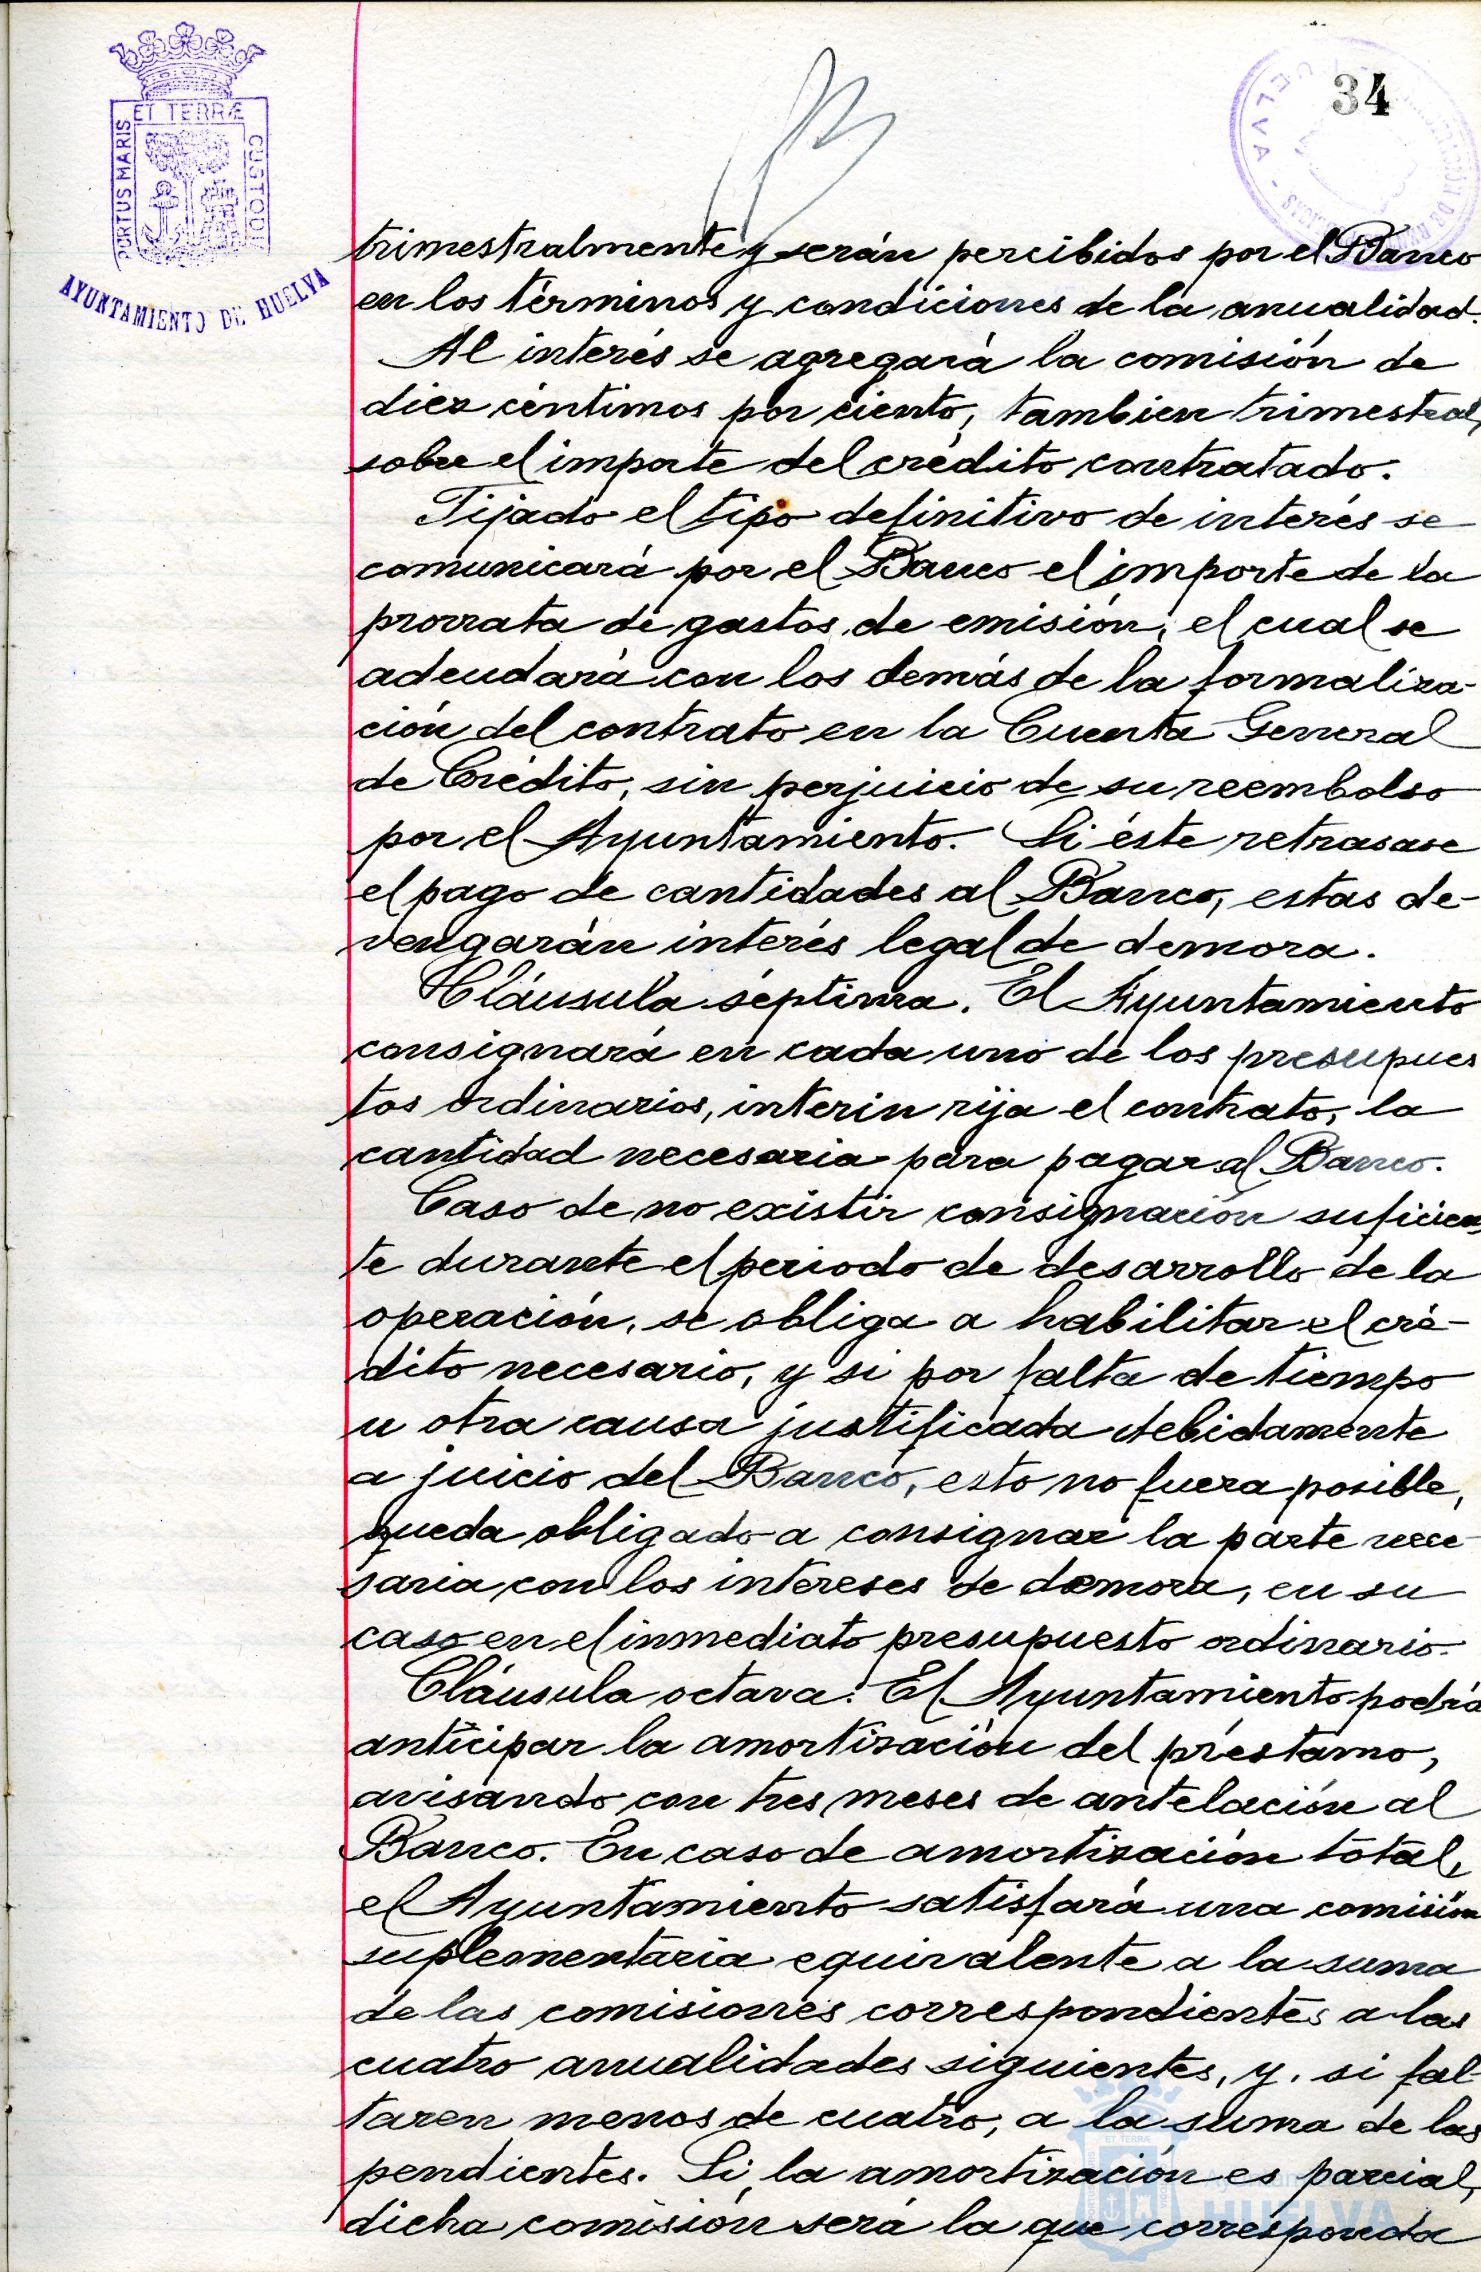 34
ET TERRÆ
PORTUS MARIS
CUSTODIA
AYUNTAMIENTO DE HUELVA
trimestralmente y serán percibidos por el Banco
en los términos y condiciones de la anualidad.
Al interés se agregará la comisión de
diez céntimos por ciento, tambien trimestral,
sobre el importe del crédito contratado.
Fijado el tipo definitivo de interés se
comunicará por el Banco el importe de la
prorrata de gastos de emisión, el cual se
adeudará con los demás de la formaliza-
ción del contrato en la Cuenta General
de Crédito, sin perjuicio de su reembolso
por el Ayuntamiento. Si éste retrasase
el pago de cantidades al Banco, estas de-
vengarán interés legal de demora.
Cláusula séptima. El Ayuntamiento
consignará en cada uno de los presupues
tos ordinarios, interin rija el contrato, la
cantidad necesaria para pagar al Banco.
Caso de no existir consignación suficien
te durante el periodo de desarrollo de la
operación, se obliga a habilitar el cré-
dito necesario, y si por falta de tiempo
u otra causa justificada debidamente
a juicio del Banco, esto no fuera posible,
queda obligado a consignar la parte nece-
saria con los intereses de demora, en su
caso en el inmediato presupuesto ordinario.
Cláusula octava. El Ayuntamiento podrá
anticipar la amortización del préstamo,
avisando con tres meses de antelación al
Banco. En caso de amortización total,
el Ayuntamiento satisfará una comisión
suplementaria equivalente a la suma
de las comisiones correspondientes a las
cuatro anualidades siguientes, y, si fal-
taren menos de cuatro, a la suma de las
pendientes. Si la amortización es parcial,
dicha comisión será la que corresponda
HUELVA